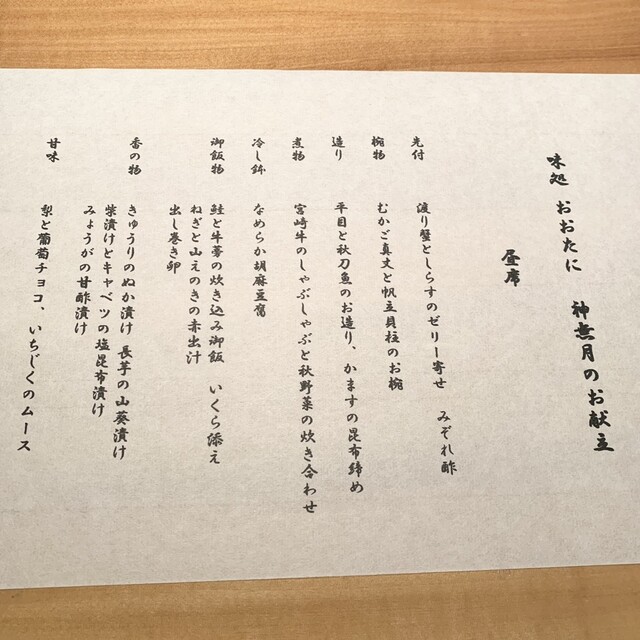 味処 おおたに 神無月のお献立
昼席
先付 渡り蟹としらすのゼリー寄せ みぞれ酢
椀物 むかご真丈と帆立貝柱のお椀
造り 平目と秋刀魚のお造り、かますの昆布締め
煮物 宮崎牛のしゃぶしゃぶと秋野菜の炊き合わせ
冷し鉢 なめらか胡麻豆腐
御飯物 鮭と牛蒡の炊き込み御飯 いくら添え
ねぎと山えのきの赤出汁
出し巻き卵
香の物 きゅうりのぬか漬け 長芋の山葵漬け
柴漬けとキャベツの塩昆布漬け
みょうがの甘酢漬け
甘味 梨と葡萄チョコ、いちじくのムース